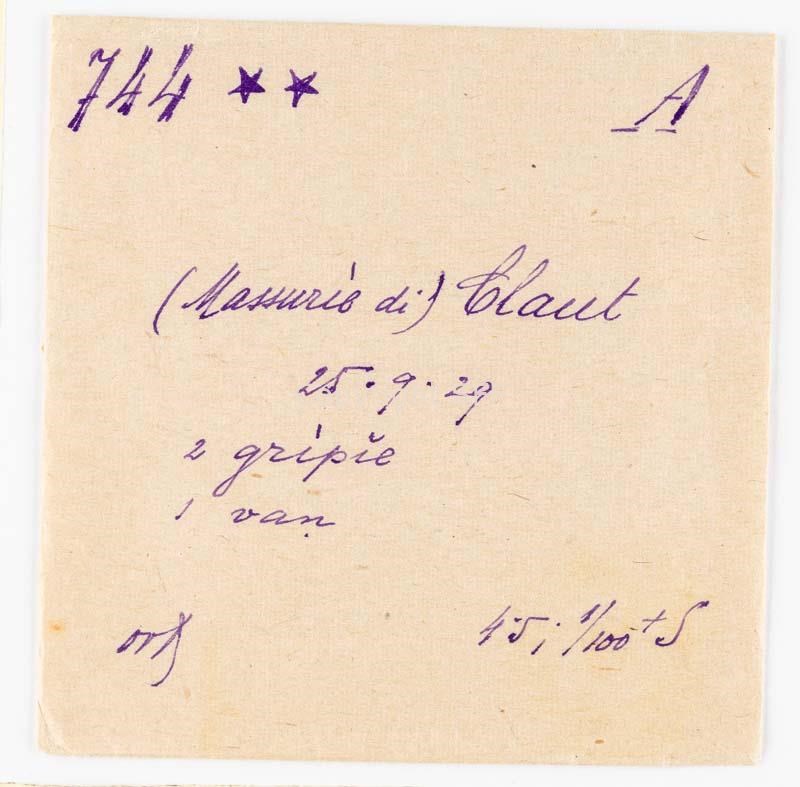 744 ★★ A
(Massurìe di) Claut
25.9.29
2 grìpie
1 vaṇ
4.5; 1/100 + S